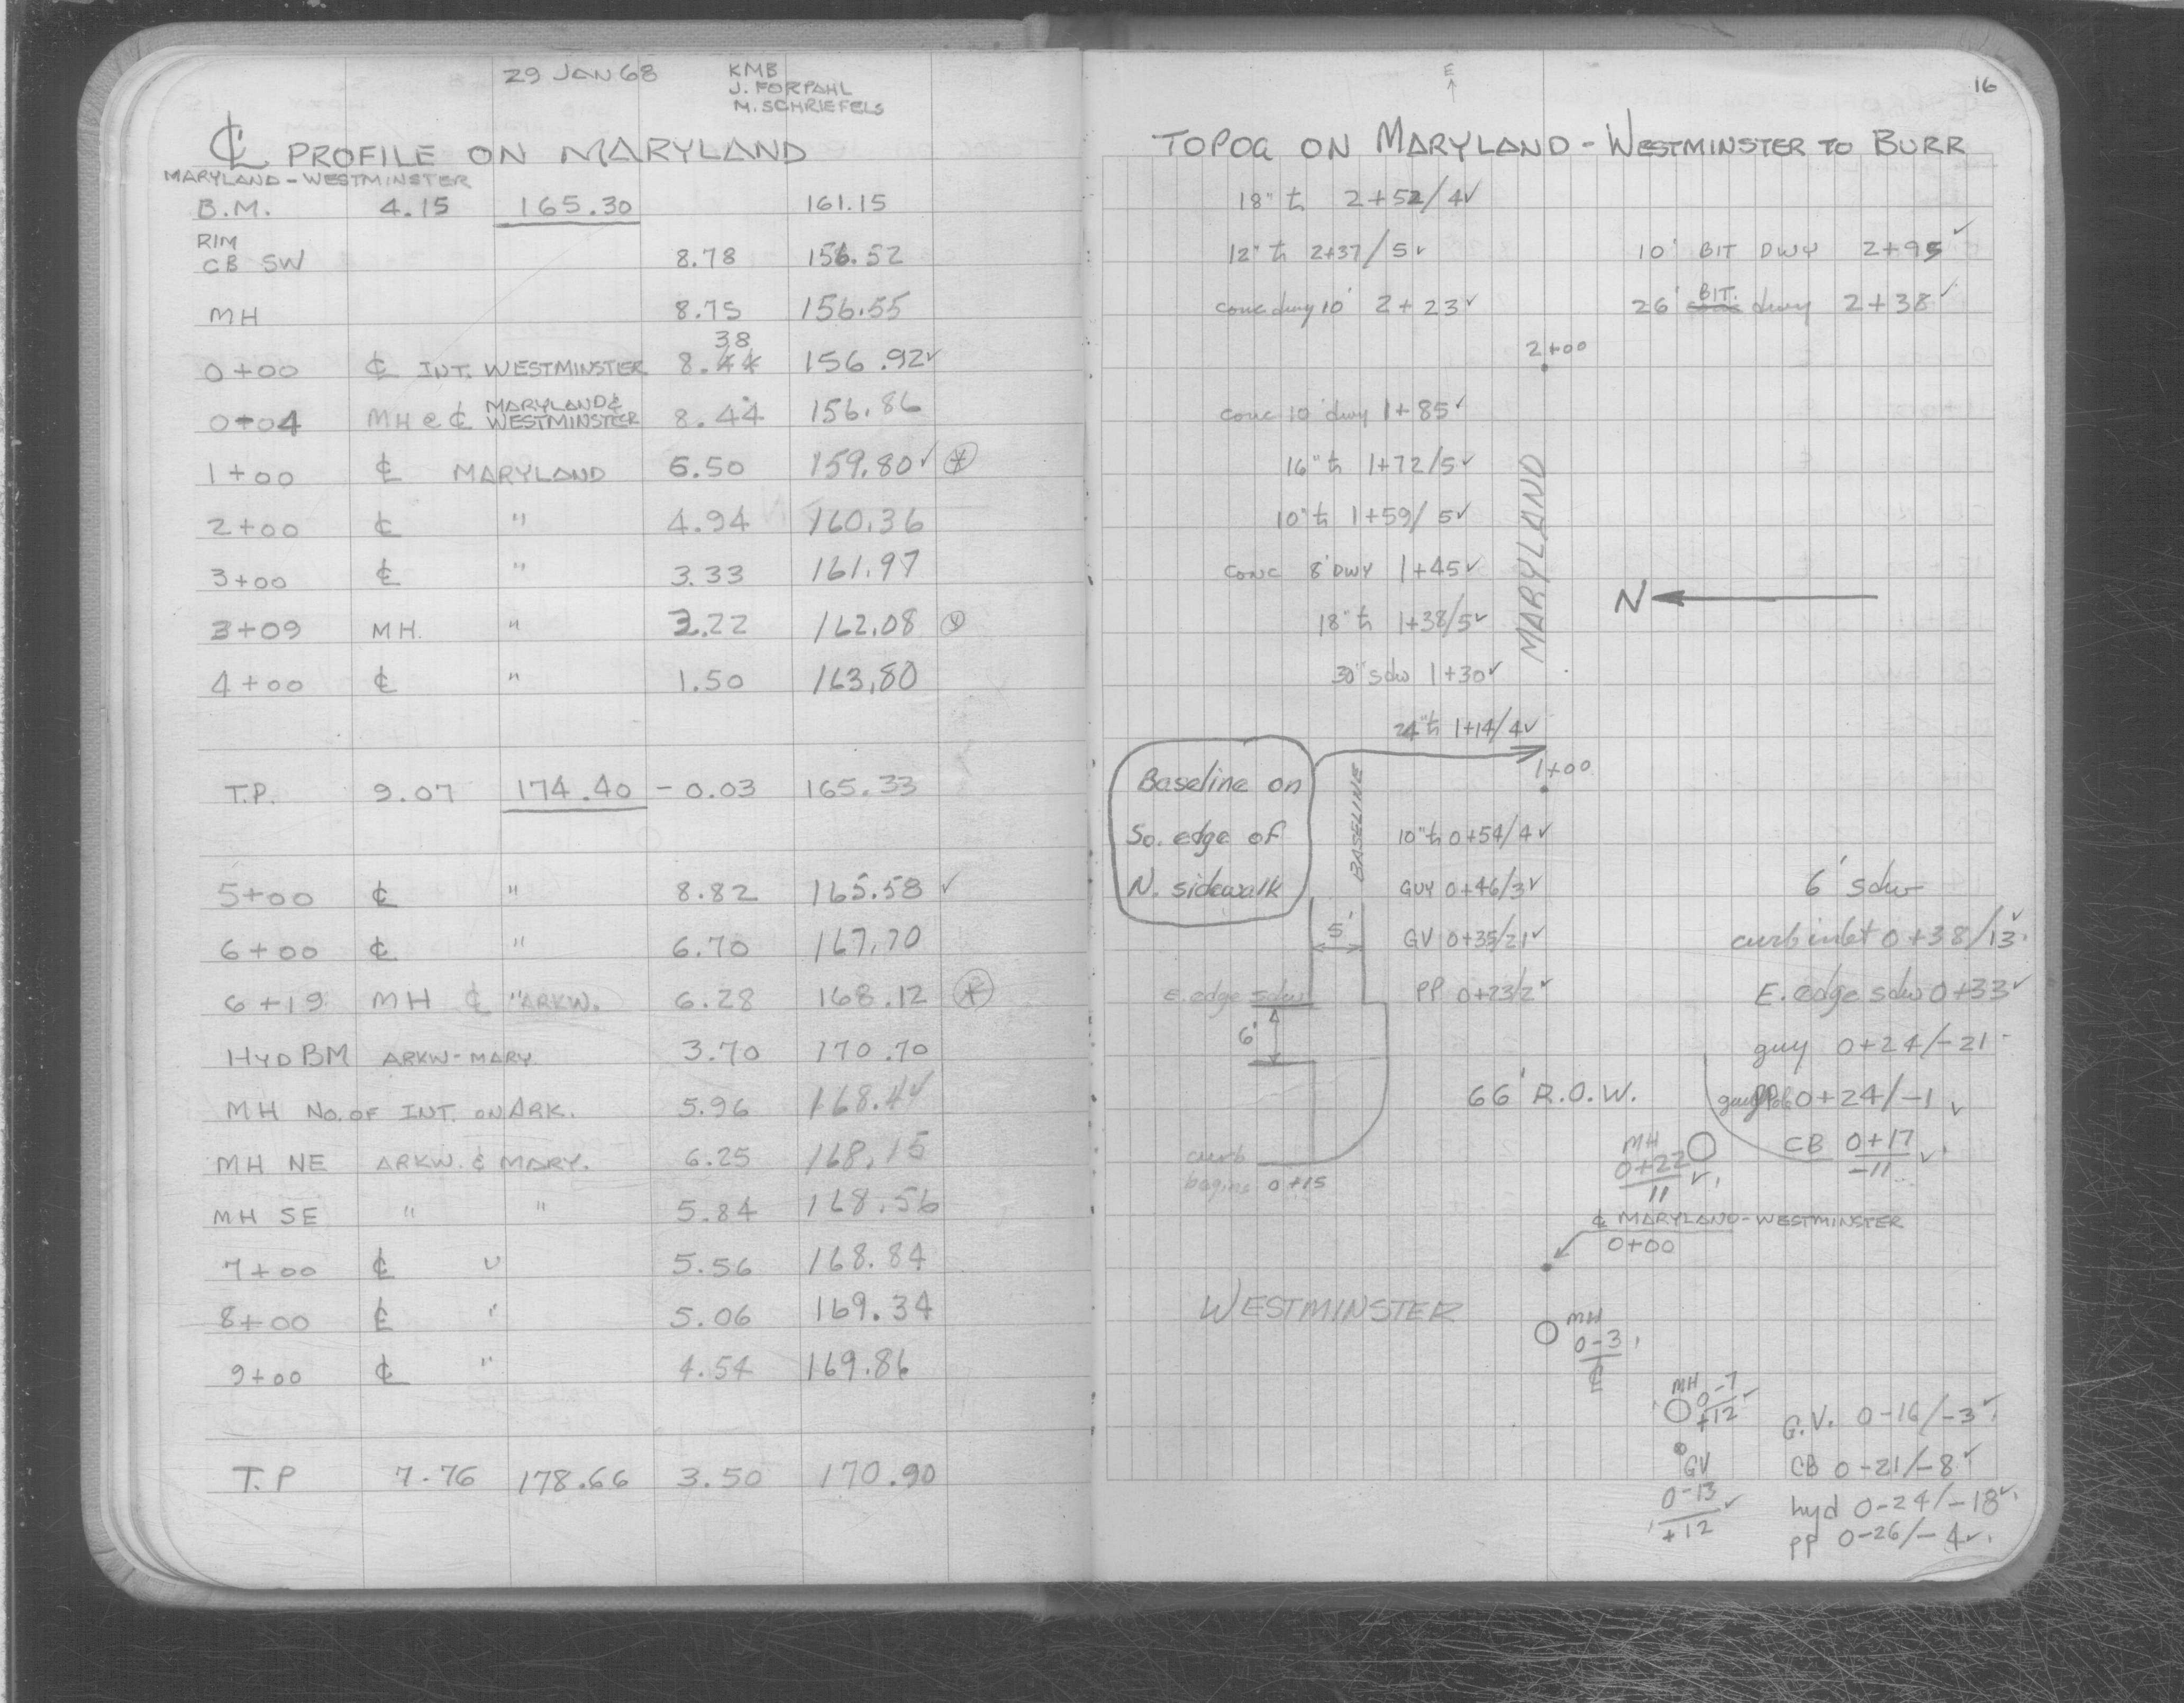 29 JAN 68
KMB
J. FORPAHL
M. SCHRIEFELS
℄ PROFILE ON MARYLAND
MARYLAND - WESTMINSTER
B.M. 4.15 165.30 161.15
RIM
CB SW 8.78 156.52
MH 8.75 156.55
38
0+00 ℄ INT. WESTMINSTER 8.44 156.92✓
MARYLAND &
0+04 MH @ ℄ WESTMINSTER 8.44 156.86
1+00 ℄ MARYLAND 5.50 159.80✓ *
2+00 ℄ " 4.94 160.36
3+00 ℄ " 3.33 161.97
3+09 MH. " 3.22 162.08
4+00 ℄ " 1.50 163.80
T.P. 9.07 174.40 -0.03 165.33
5+00 ℄ " 8.82 165.58 ✓
6+00 ℄ " 6.70 167.70
6+19 MH ℄ "ARKW. 6.28 168.12 *
HYD BM ARKW-MARY. 3.70 170.70
MH NO. OF INT. ON ARK. 5.96 168.44
MH NE ARKW. & MARY. 6.25 168.15
MH SE " " 5.84 168.56
7+00 ℄ " 5.56 168.84
8+00 ℄ " 5.06 169.34
9+00 ℄ " 4.54 169.86
T.P 7.76 178.66 3.50 170.90
16
E
TOPOG ON MARYLAND - WESTMINSTER TO BURR
18" t 2+52/4✓
12" t 2+37/5✓ 10' BIT DWY 2+95✓
conc dwy 10' 2+23✓ 26' BIT. dwy 2+38✓
2+00
conc 10' dwy 1+85✓
16" t 1+72/5✓
MARYLAND
10" t 1+59/5✓
CONC 8' DWY 1+45✓
N
18" t 1+38/5✓
30" sdw 1+30✓
24" t 1+14/4✓
1+00
Baseline on
So. edge of
N. sidewalk
BASELINE
10" t 0+54/4✓
GUY 0+46/3✓ 6' sdw
5' GV 0+35/21✓ curb inlet 0+38/13✓
E. edge sdw PP 0+23/2✓ E. edge sdw 0+33✓
6' guy 0+24/-21
66' R.O.W. 0+24/-1 ✓
MH
0+22
11 ✓
CB 0+17
-11 ✓
curb
begins 0+15
℄ MARYLAND-WESTMINSTER
0+00
WESTMINSTER
MH
0-3
℄
MH 0-7
+12 ✓
G.V. 0-16/-3✓
GV
0-13
+12 ✓
CB 0-21/-8✓
hyd 0-24/-18✓
PP 0-26/-4✓